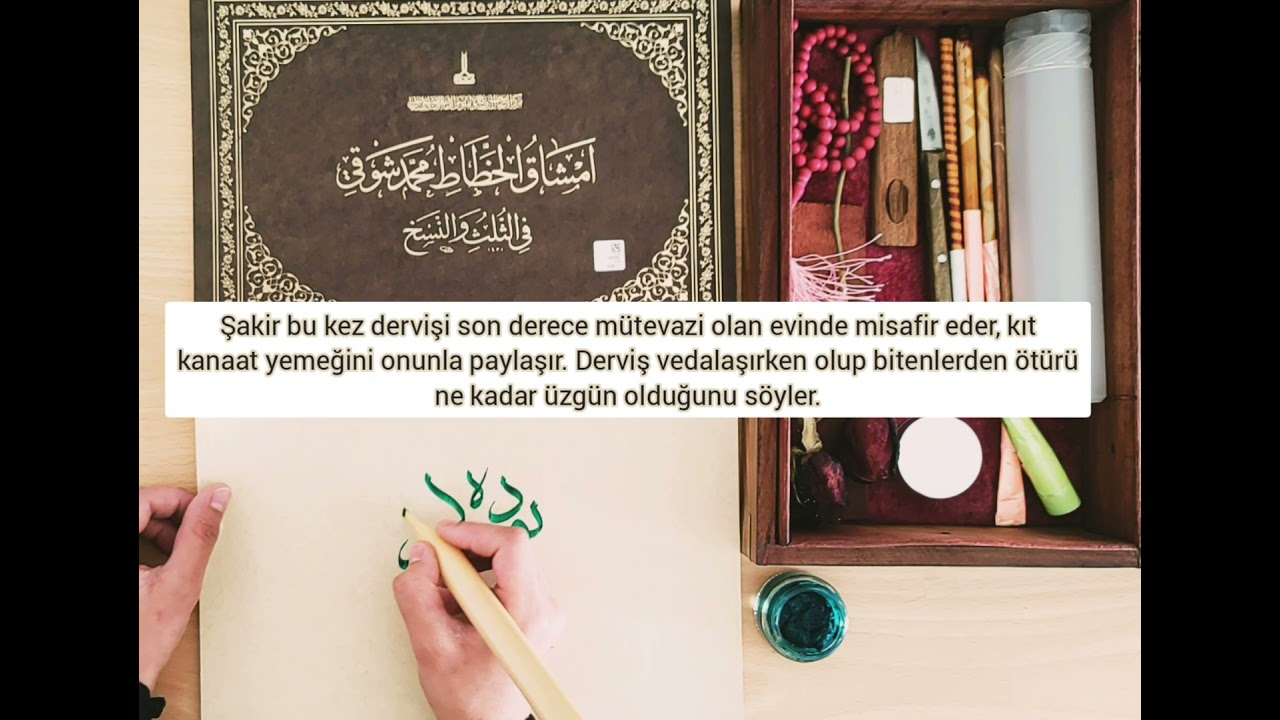 امشاق الخطاط محمد شوقي
في الثلث والنسخ
Şakir bu kez dervişi son derece mütevazi olan evinde misafir eder, kıt
kanaat yemeğini onunla paylaşır. Derviş vedalaşırken olup bitenlerden ötürü
ne kadar üzgün olduğunu söyler.